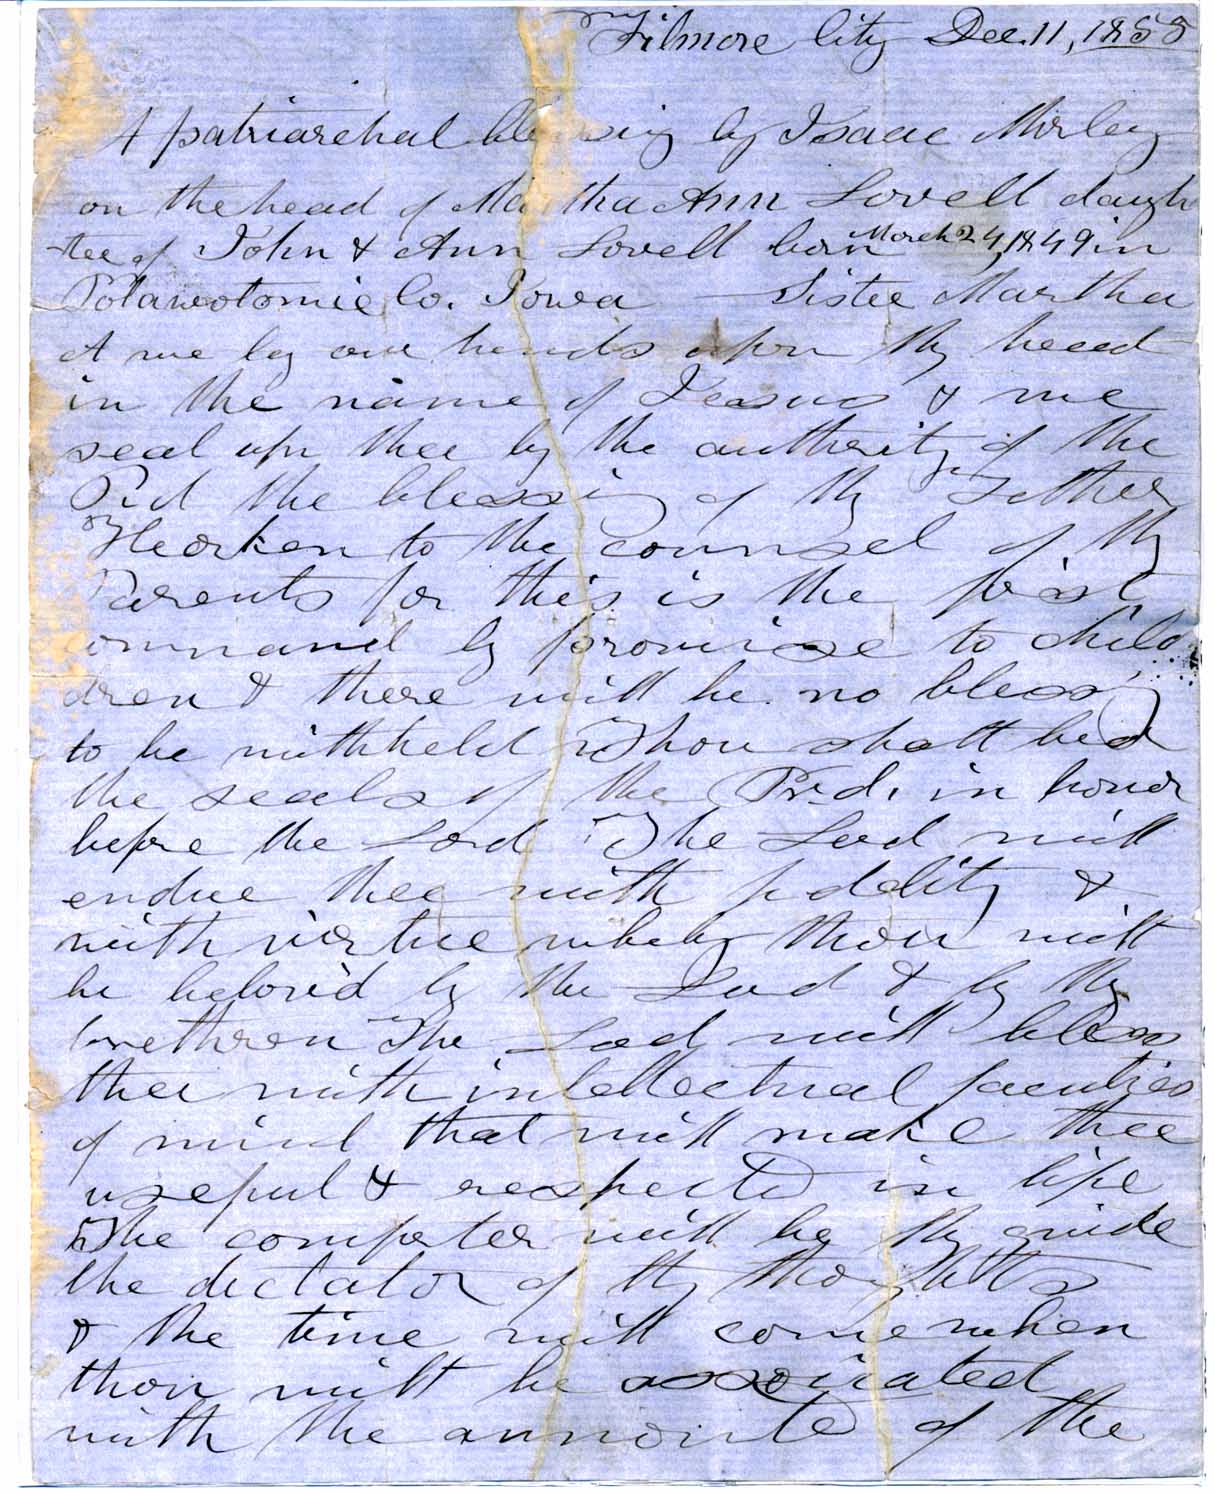 Filmore City Dec. 11, 1858
A patriarchal blessing by Isaac Morley
on the head of Martha Ann Lovell daugh
ter of John & Ann Lovell born March 24, 1849 in
Potawotomie Co. Iowa Sister Martha
A we lay our hands upon thy head
in the name of Jeasus & we
seal upn thee by the authority of the
Prd the blessing of thy Father
Hearken to the counsel of thy
Parents for this is the first
command by promise to child
dren & there will be no blessing
to be withheld Thou shalt hed
the seals of the Prd. in honor
before the Lord The Lord will
endue thee with fidelity &
with virtue wheby thou wilt
be belov'd by the Lord & by thy
brethren The Lord will bless
thee with intellectual faculties
of mind that will make thee
useful & respected in life
The comforter will be thy guide
the dictator of thy thoughts
& the time will come when
thou wilt be associated
with the annointed of the